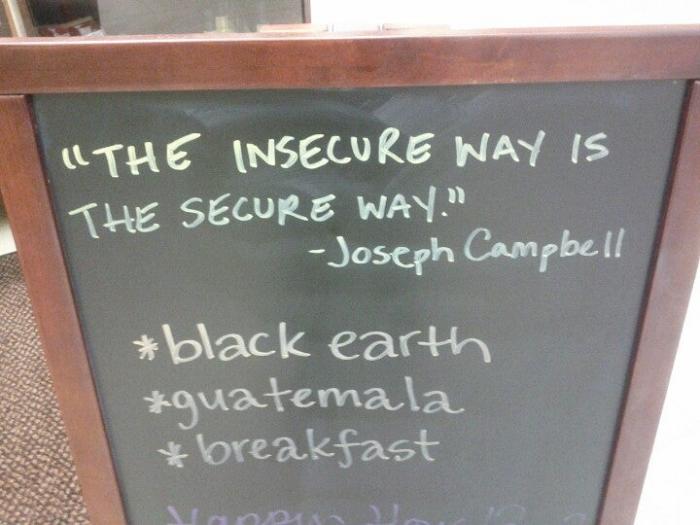 "THE INSECURE WAY IS
THE SECURE WAY."
-Joseph Campbell
*black earth
*guatemala
*breakfast
Happy